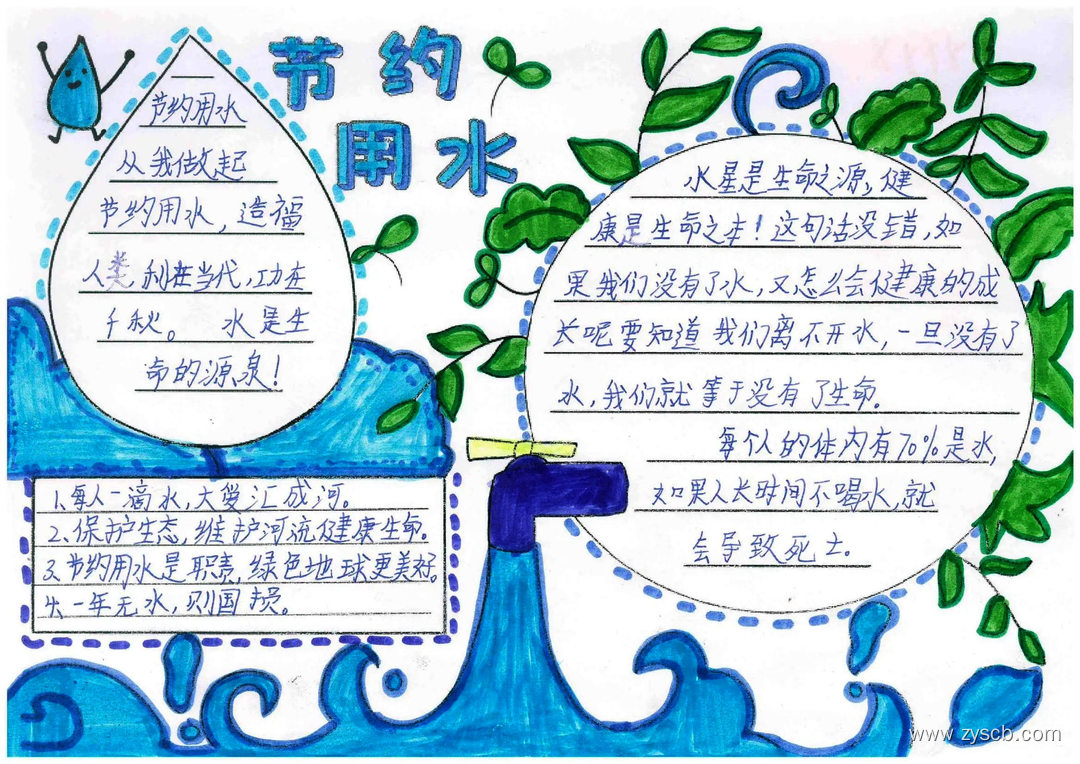 节约
用水
节约用水
从我做起
节约用水，造福
人类，利在当代，功在
千秋。 水是生
命的源泉！
水星是生命之源，健
康是生命之本！这句话没错，如
果我们没有了水，又怎么会健康的成
长呢要知道我们离不开水，一旦没有了
水，我们就等于没有了生命。
每个人的体内有70%是水，
如果人长时间不喝水，就
会导致死亡。
1、每人一滴水，大爱汇成河。
2、保护生态，维护河流健康生命。
3、节约用水是职责，绿色地球更美好。
4、一年无水，则国损。
www.zyscb.com